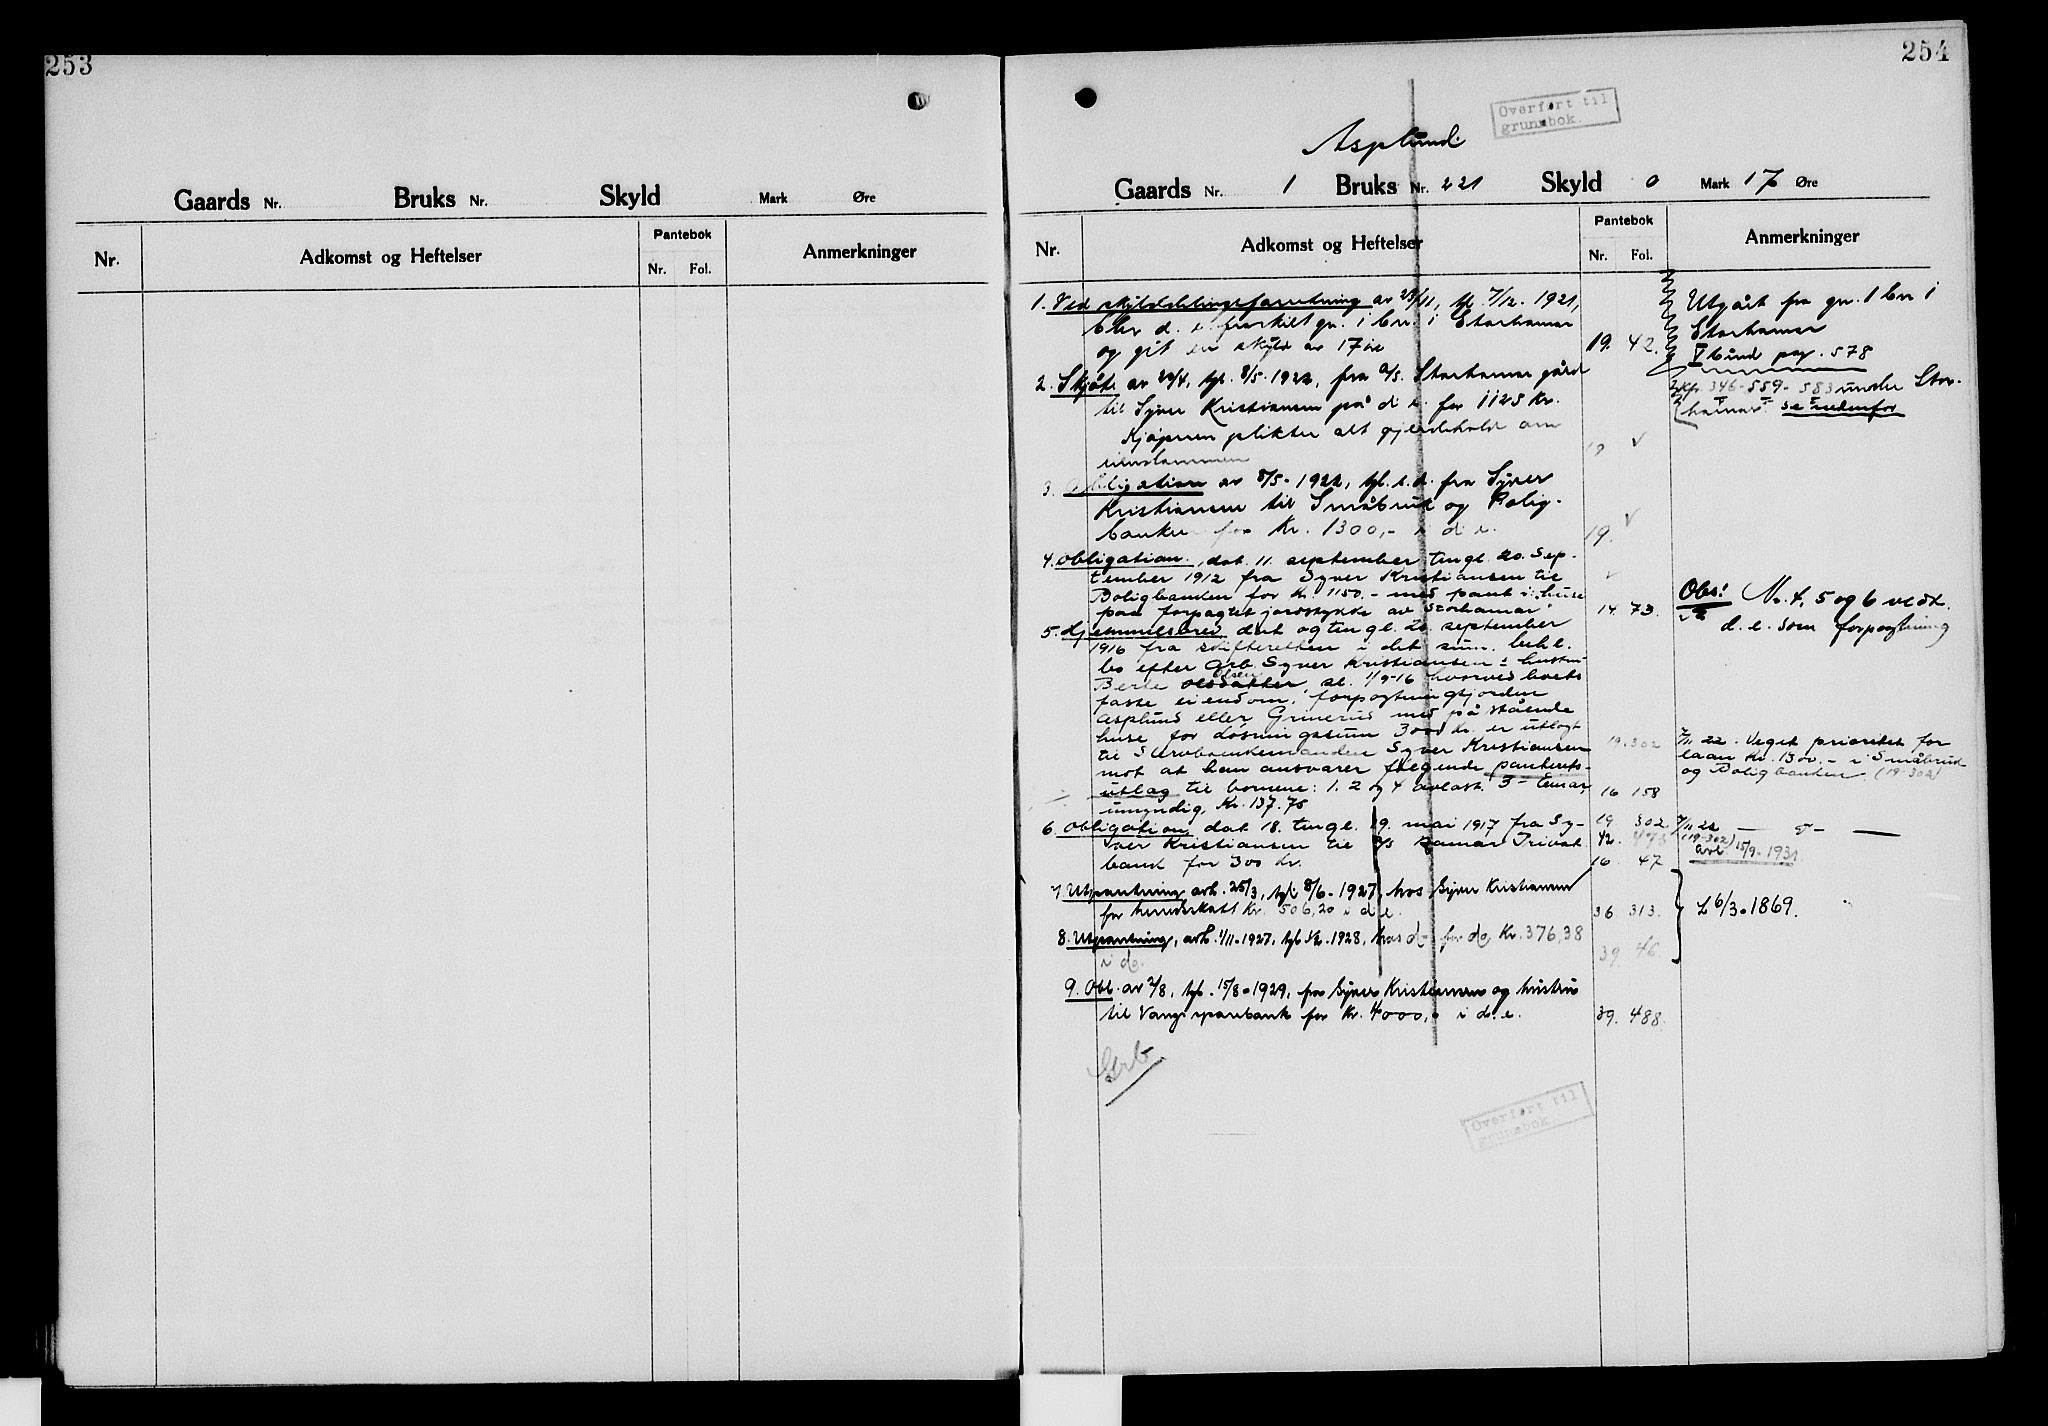 253
Gaards Nr. Bruks Nr. Skyld Mark Øre
Nr. Adkomst og Heftelser Pantebok Nr. Fol. Anmerkninger
254
Overført til
grunnbok.
Asplund.
Gaards Nr. 1 Bruks Nr. 221 Skyld 0 Mark 17 Øre
Nr. Adkomst og Heftelser Pantebok Nr. Fol. Anmerkninger
1. Ved skylddelingsforretning av 23/11, tgl. 7/12. 1921,
blev d. e. fraskilt gn. 1 bn. 1 Storhamar
og git en skyld av 17 øre 19. 42.
Utgått fra gn. 1 bn 1
Storhamar
V bind pag. 578
2. Skjøte av 29/4, tgl. 8/5. 1922, fra A/S. Storhamar gård
til Syver Kristiansen på d. e. for 1125 Kr.
Kjøperen plikter alt gjerdehold om
eiendommen 19
346-559-583 under Stor-
hamar. se nedenfor
3. Obligation av 8/5-1922, tgl. s.d. fra Syver
Kristiansen til Småbruk og Bolig-
banken for Kr. 1300,- i d. e. 19.
4. Obligation, dat. 11. september tingl. 20. Sep-
tember 1912 fra Syver Kristiansen til
Boligbanken for kr. 1150.- med pant i huse
paa forpagtet jordstykke av Storhamar. 14 73.
Obs! No. 4, 5 og 6 vedk.
d. e. som forpagtning
5. Hjemmelsbrev dat og tingl. 20. september
1916 fra skifteretten i det sum. behl.
bo efter arb. Syver Kristiansen & hustru
Berte Olsen, sl. 1/9-16 hvorved boets
faste eiendom, forpagtningsjorden
Asplund eller Grinerud med på stående
huse for løsningssum 3000 kr. er utlagt
til Syver Kristiansen 19. 302
mot at han ansvarer følgende panterets-
utlæg til børnene: 1. 2 og 4 avløst. 3- Einar, 16 158
umyndig, Kr. 137.75
7/11 22. Veget prioritet for
laan Kr. 1300.- i Småbruk
og Boligbanken (19-302)
6. Obligation, dat 18. tingl. 19. mai 1917 fra Sy- 19 302
ver Kristiansen til A/S Hamar Privat- 42.
bank for 300 kr. 16 47
7/11 22 — d- —
(19-302)
Avl. 15/9-1931.
7. Utpantning avh. 25/3, tgl. 8/6-1927, hos Syver Kristiansen
for herredsskatt Kr. 506,20 i d. e. 36 313.
L 6/3-1869.
8. Utpantning, avh. 1/11-1927, tgl. 1928, hos d- for do, Kr. 376,38
i do. 39. 46.
9. Obl. av 2/8, tgl. 15/8-1929, fra Syver Kristiansen og hustru
til Vang sparebank for Kr. 4000,- i d. e. 39. 488.
Overført til
grunnbok.